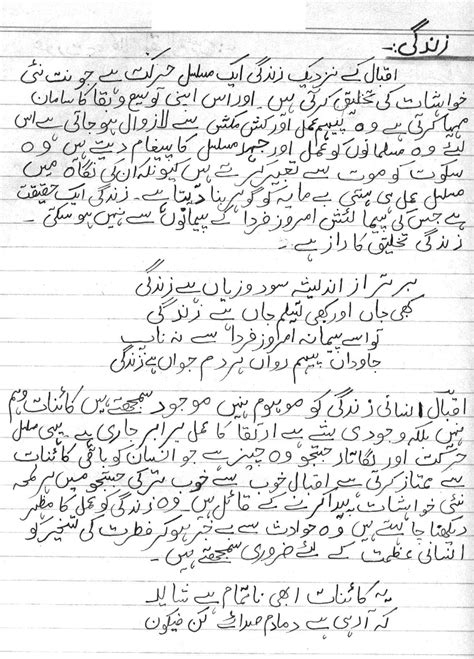 زندگی :۔
اقبال کے نزدیک زندگی ایک مسلسل حرکت ہے جو نت نئی
خواہشات کی تخلیق کرتی ہیں۔ اور اس اپنی توسیع و بقا کا سامان
مہیا کرتی ہے وہ پیہم عمل اور کش مکش سے لازوال ہو جاتی ہے اس
لیے وہ مسلمانوں کو عمل اور جہد مسلسل کا پیغام دیتے ہیں وہ
سکوت کو موت سے تعبیر کرتے ہیں کیونکہ ان کی نگاہ میں
مسلسل عمل ہی ہستی بے مایہ کو گوہر بنا دیتا ہے۔ زندگی ایک حقیقت
ہے جس کی پیمائش امروز فردا کے پیمانوں سے نہیں ہو سکتی۔
زندگی تخلیق کا راز ہے۔
برتر از اندیشہ سود و زیاں ہے زندگی
کبھی جاں اور کبھی تسلیم جاں ہے زندگی
تو اسے پیمانہ امروز فردا سے نہ ناپ
جاوداں پیہم رواں ہر دم جواں ہے زندگی
اقبال انسانی زندگی کو موہوم نہیں موجود سمجھتے ہیں کائنات وہم
نہیں بلکہ وجودی ہے ارتقا کا عمل برابر جاری ہے یہی مسلسل
حرکت اور لگاتار جستجو وہ چیز ہے جو انسان کو باقی کائنات
سے ممتاز کرتی ہے اقبال خوب سے خوب تر کی جستجو میں ہر لمحہ
نئی خواہشات پیدا کرنے کے قائل ہیں۔ وہ زندگی کو عمل کا مظہر
دیکھنا چاہتے ہیں وہ حوادث سے بے خبر ہو کر فطرت کی تسخیر کو
انسانی عظمت کے لئے ضروری سمجھتے ہیں۔
یہ کائنات ابھی ناتمام ہے شاید
کہ آرہی ہے دمادم صدائے کن فیکون